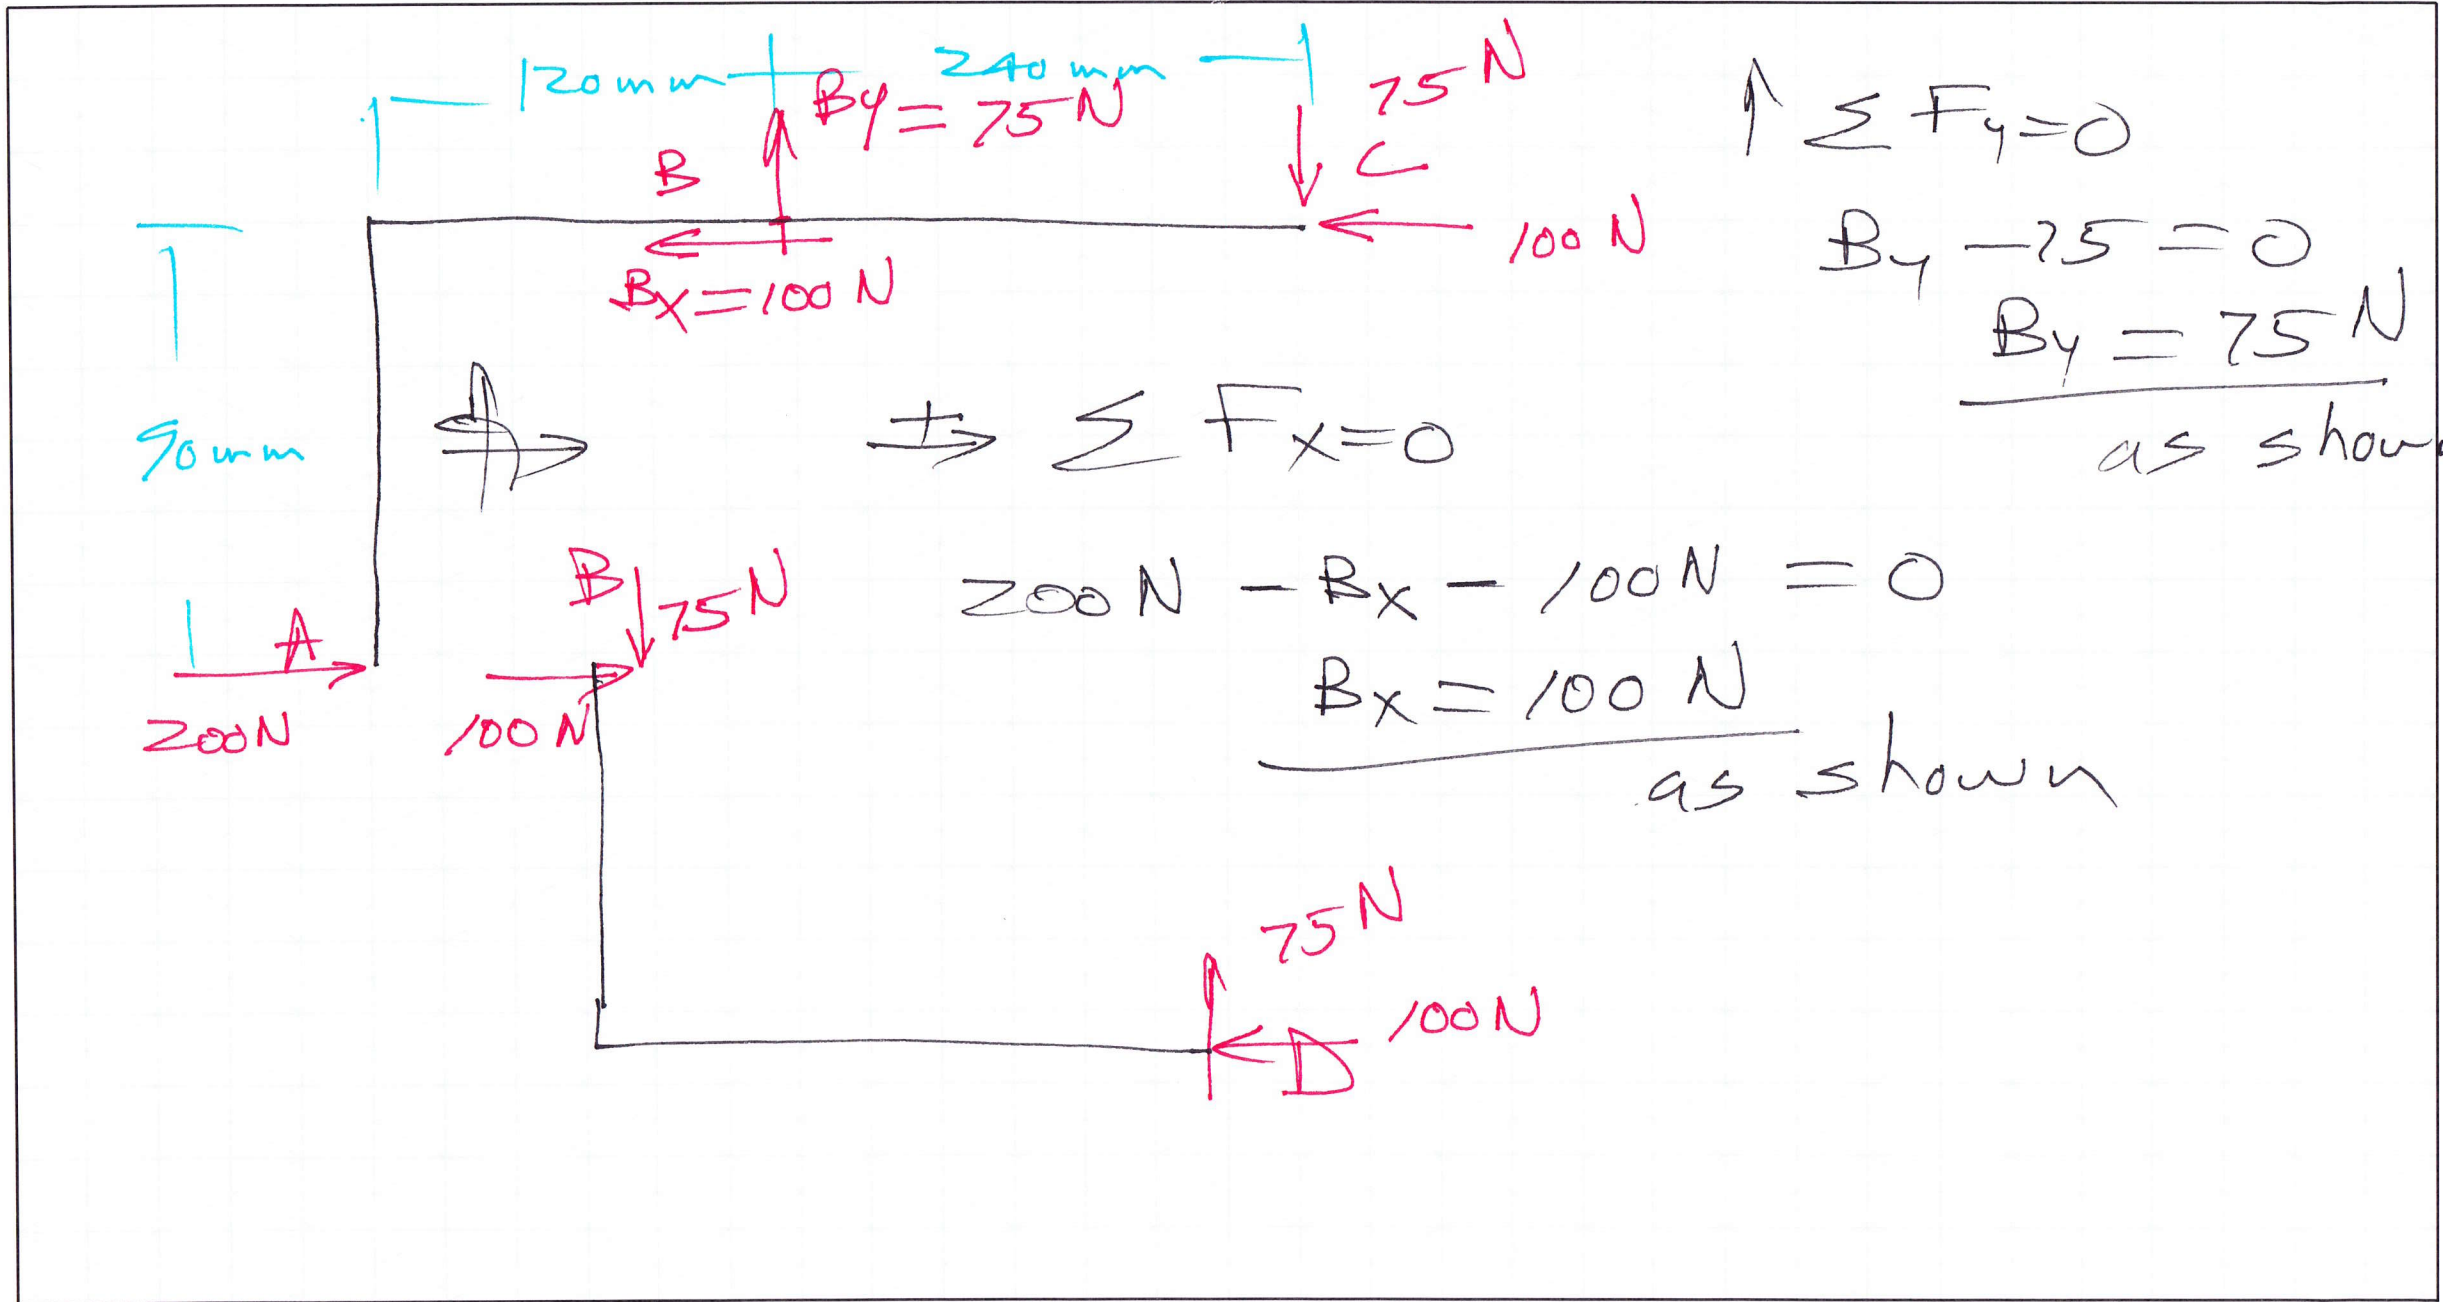 120mm 240mm
By = 75N
75N
B
C
100N
Bx=100N
90mm
A
200N
B 75N
100N
75N
100N
D
ΣFy=0
By -75=0
By = 75N
as shown
+ ΣFx=0
200N - Bx - 100N = 0
Bx = 100N
as shown